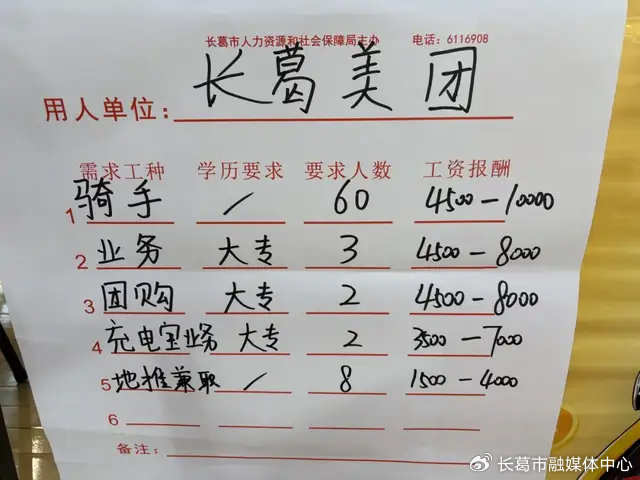 长葛市人力资源和社会保障局主办 电话：6116908
用人单位： 长葛美团
需求工种 学历要求 要求人数 工资报酬
1 骑手 / 60 4500-10000
2 业务 大专 3 4500-8000
3 团购 大专 2 4500-8000
4 充电宝业务 大专 2 3500-7000
5 地推兼职 / 8 1500-4000
6
备注：
长葛市融媒体中心